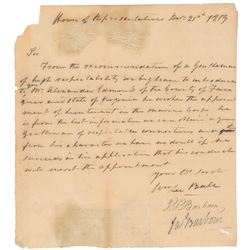 House of Representatives Decr 21st 1819
Sir
From the recommendation of a Gentleman
of high respectability we beg leave to introduce
to you Mr. Alexander Edmonds of the County of Fau
quier and State of Virginia he wishes the appoint
ment of Lieutenant in the Marine Corps he
is from the best information we can obtain a young
Gentleman of respectable connections and
from his character we have no doubt if he
succeeds in his application that his conduct
will merit the appointment.
Your Ob. Servts
Wm Lee Ball
J. S. Barbour